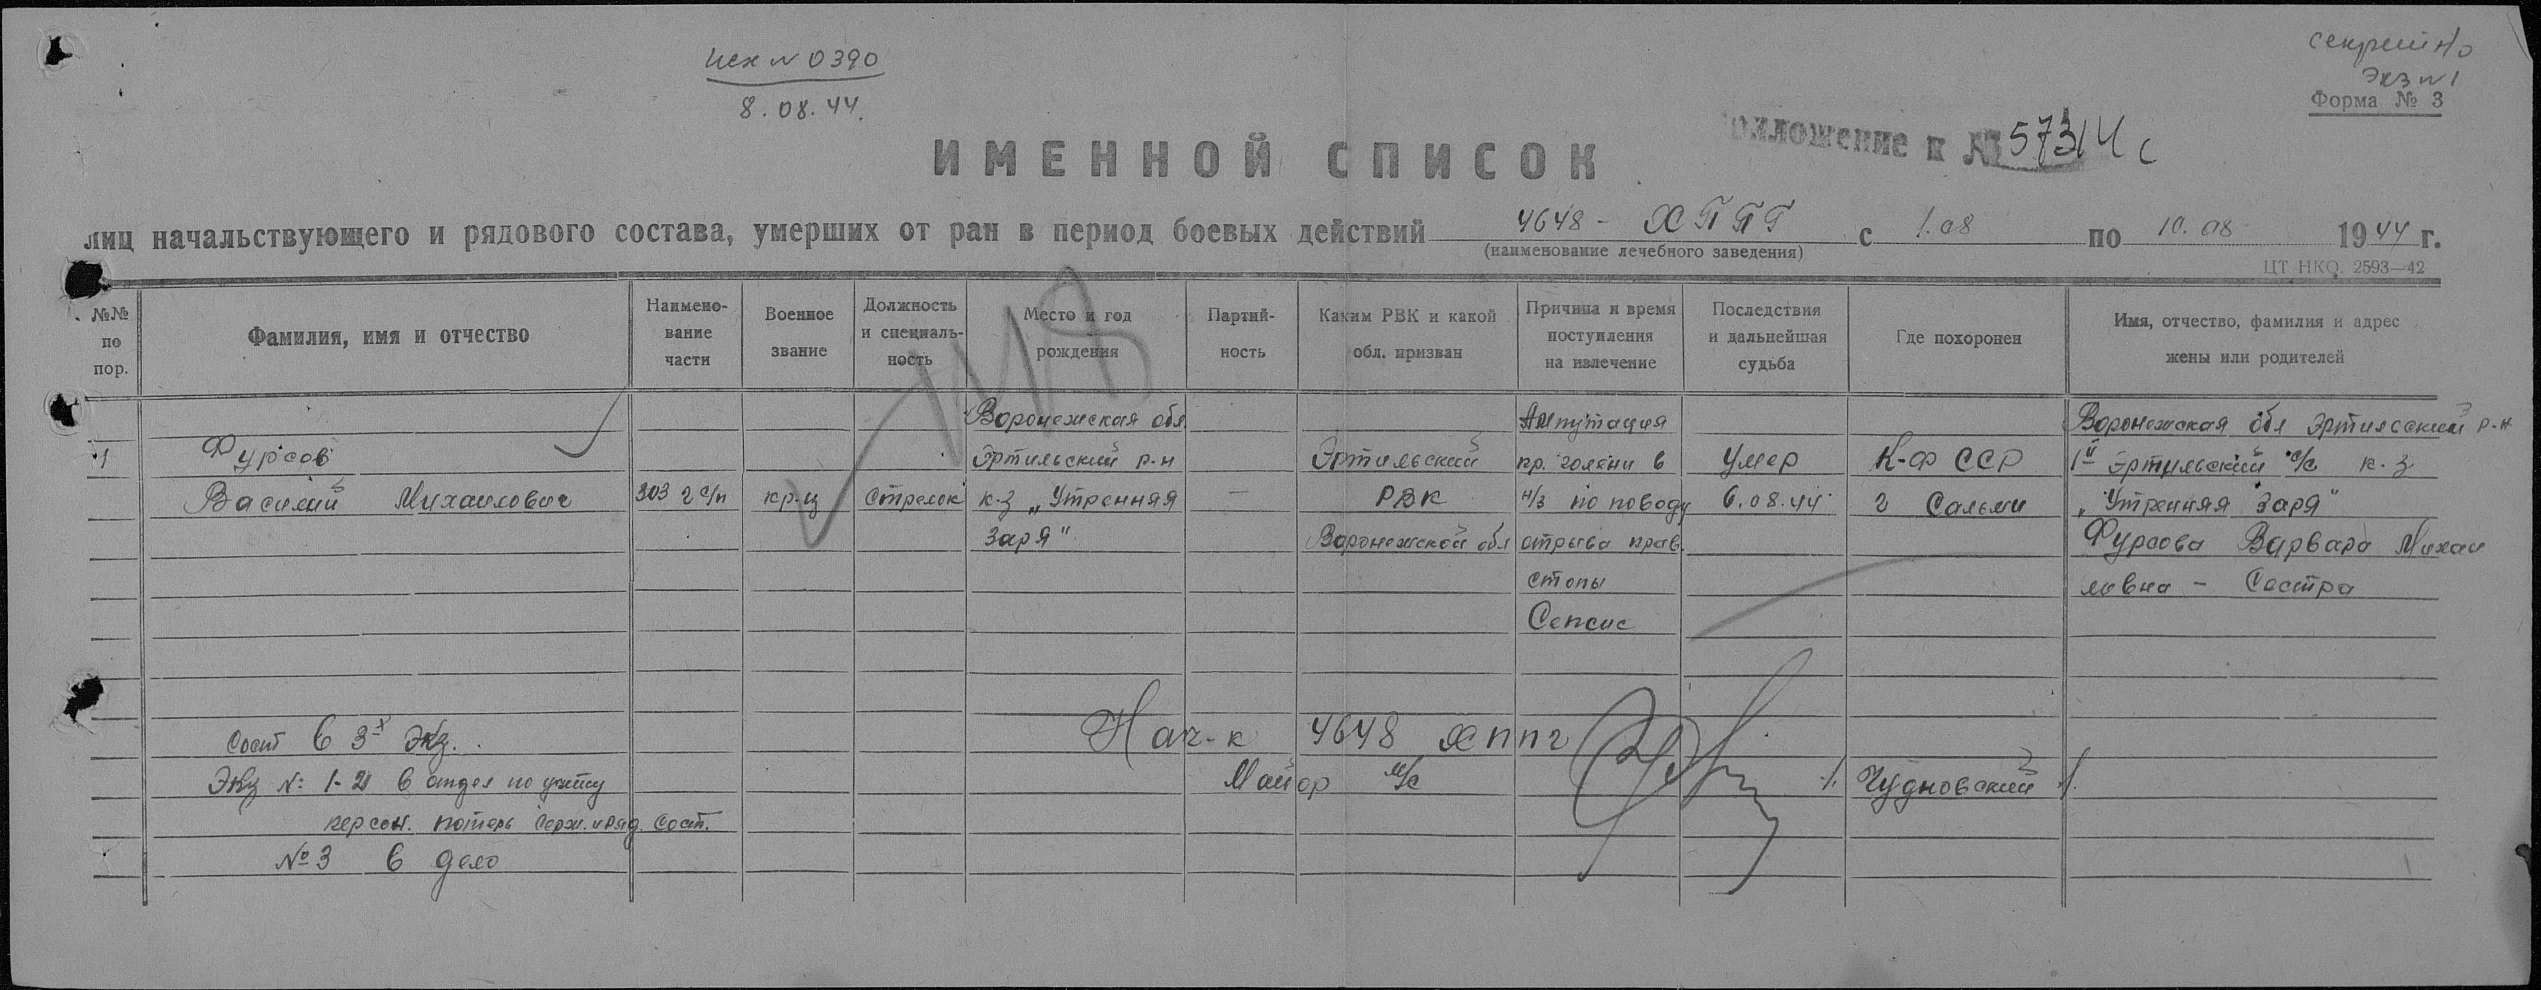 Исх № 0390
8.08.44.
секретно
Экз № 1
Форма № 3
Приложение к № 57314 с
ИМЕННОЙ СПИСОК
лиц начальствующего и рядового состава, умерших от ран в период боевых действий 4648 - ХППГ с 1.08 по 10.08 1944 г.
(наименование лечебного заведения)
ЦТ НКО. 2593—42
№№ по пор.
Фамилия, имя и отчество
Наименование части
Военное звание
Должность и специальность
Место и год рождения
Партийность
Каким РВК и какой обл. призван
Причина и время поступления на излечение
Последствия и дальнейшая судьба
Где похоронен
Имя, отчество, фамилия и адрес жены или родителей
1
Фурсов
Василий Михаилович
303 г с/п
кр-ц
Стрелок
Воронежская обл
Эртильский р-н
к-з „Утренняя
Заря"
—
Эртильский
РВК
Воронежской обл
Ампутация
пр. голени в
н/з по поводу
отрыва прав.
стопы
Сепсис
Умер
6.08.44
К-Ф ССР
г Сальми
Воронежская обл Эртильский р-н
1й Эртильский с/с к-з
„Утренняя Заря"
Фурсова Варвара Михаи
ловна - Сестра
Нач-к 4648 ХППГ
Майор м/с /. Чудновский /.
Сост в 3х экз.
Экз №: 1-2 в отдел по учету
персон. потерь серж. и ряд. сост.
№ 3 в дело